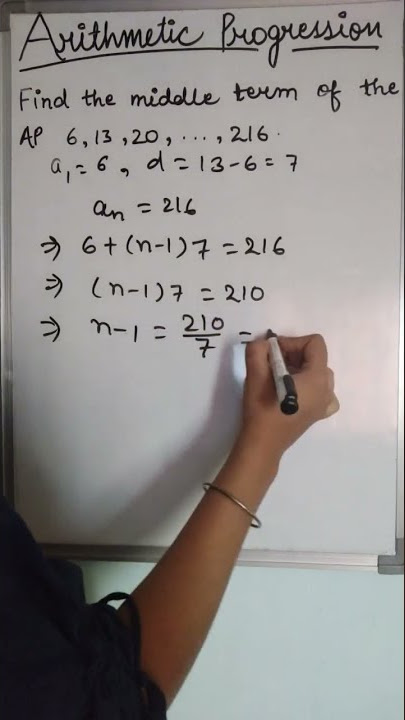 Arithmetic Progression
Find the middle term of the
AP 6, 13, 20, ..., 216.
a₁ = 6, d = 13 - 6 = 7
aₙ = 216
⇒ 6 + (n-1) 7 = 216
⇒ (n-1) 7 = 210
⇒ n-1 = 210/7 =